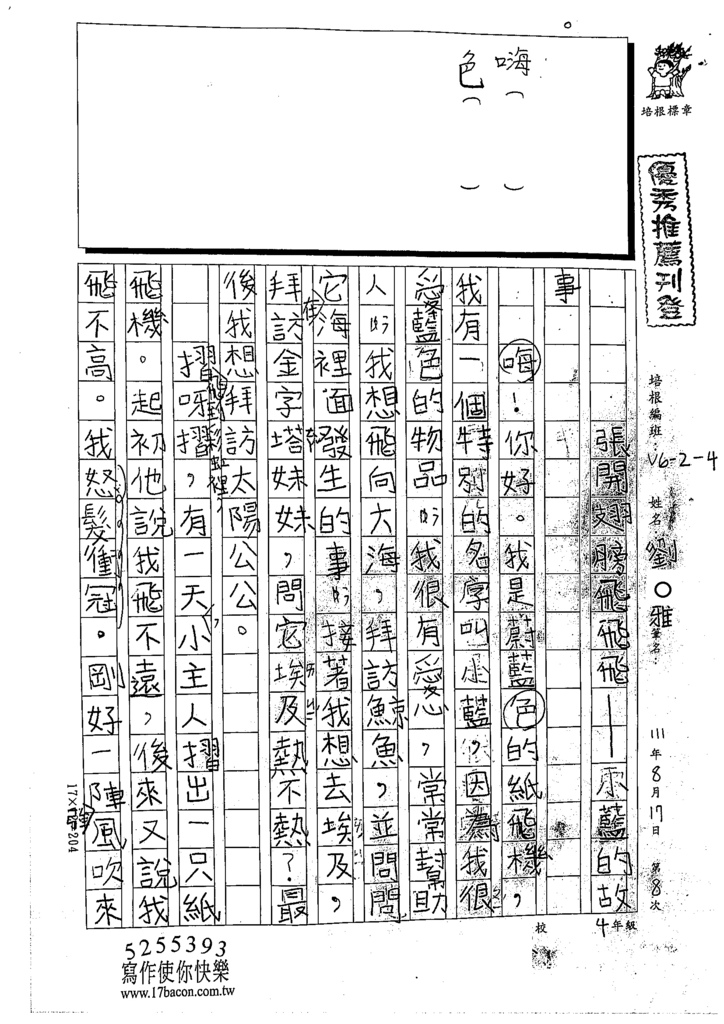 嗨（　）
色（　）
培根標章
優秀推薦刊登
培根編班：V6-2-4
姓名：劉○雅
筆名：
111年8月17日 第8次
校 4年級
張開翅膀飛飛飛——小藍的故
事
嗨！你好。我是蔚藍色的紙飛機，
我有一個特別的名字叫小藍，因為我很
愛藍色的物品，我很有愛心，常常幫助
人，我想飛向大海，拜訪鯨魚，並問問
它海裡面發生的事，接著我想去埃及，
拜訪金字塔妹妹，問它埃及熱不熱？最
後我想拜訪太陽公公。
摺呀摺，有一天，小主人摺出一只紙
飛機。起初他說我飛不遠，後來又說我
飛不高。我怒髮衝冠。剛好一陣風吹來
5255393
寫作使你快樂
www.17bacon.com.tw